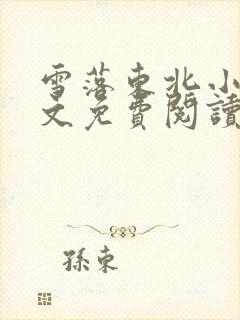 雪落東北小
文免費閱讀
孫東